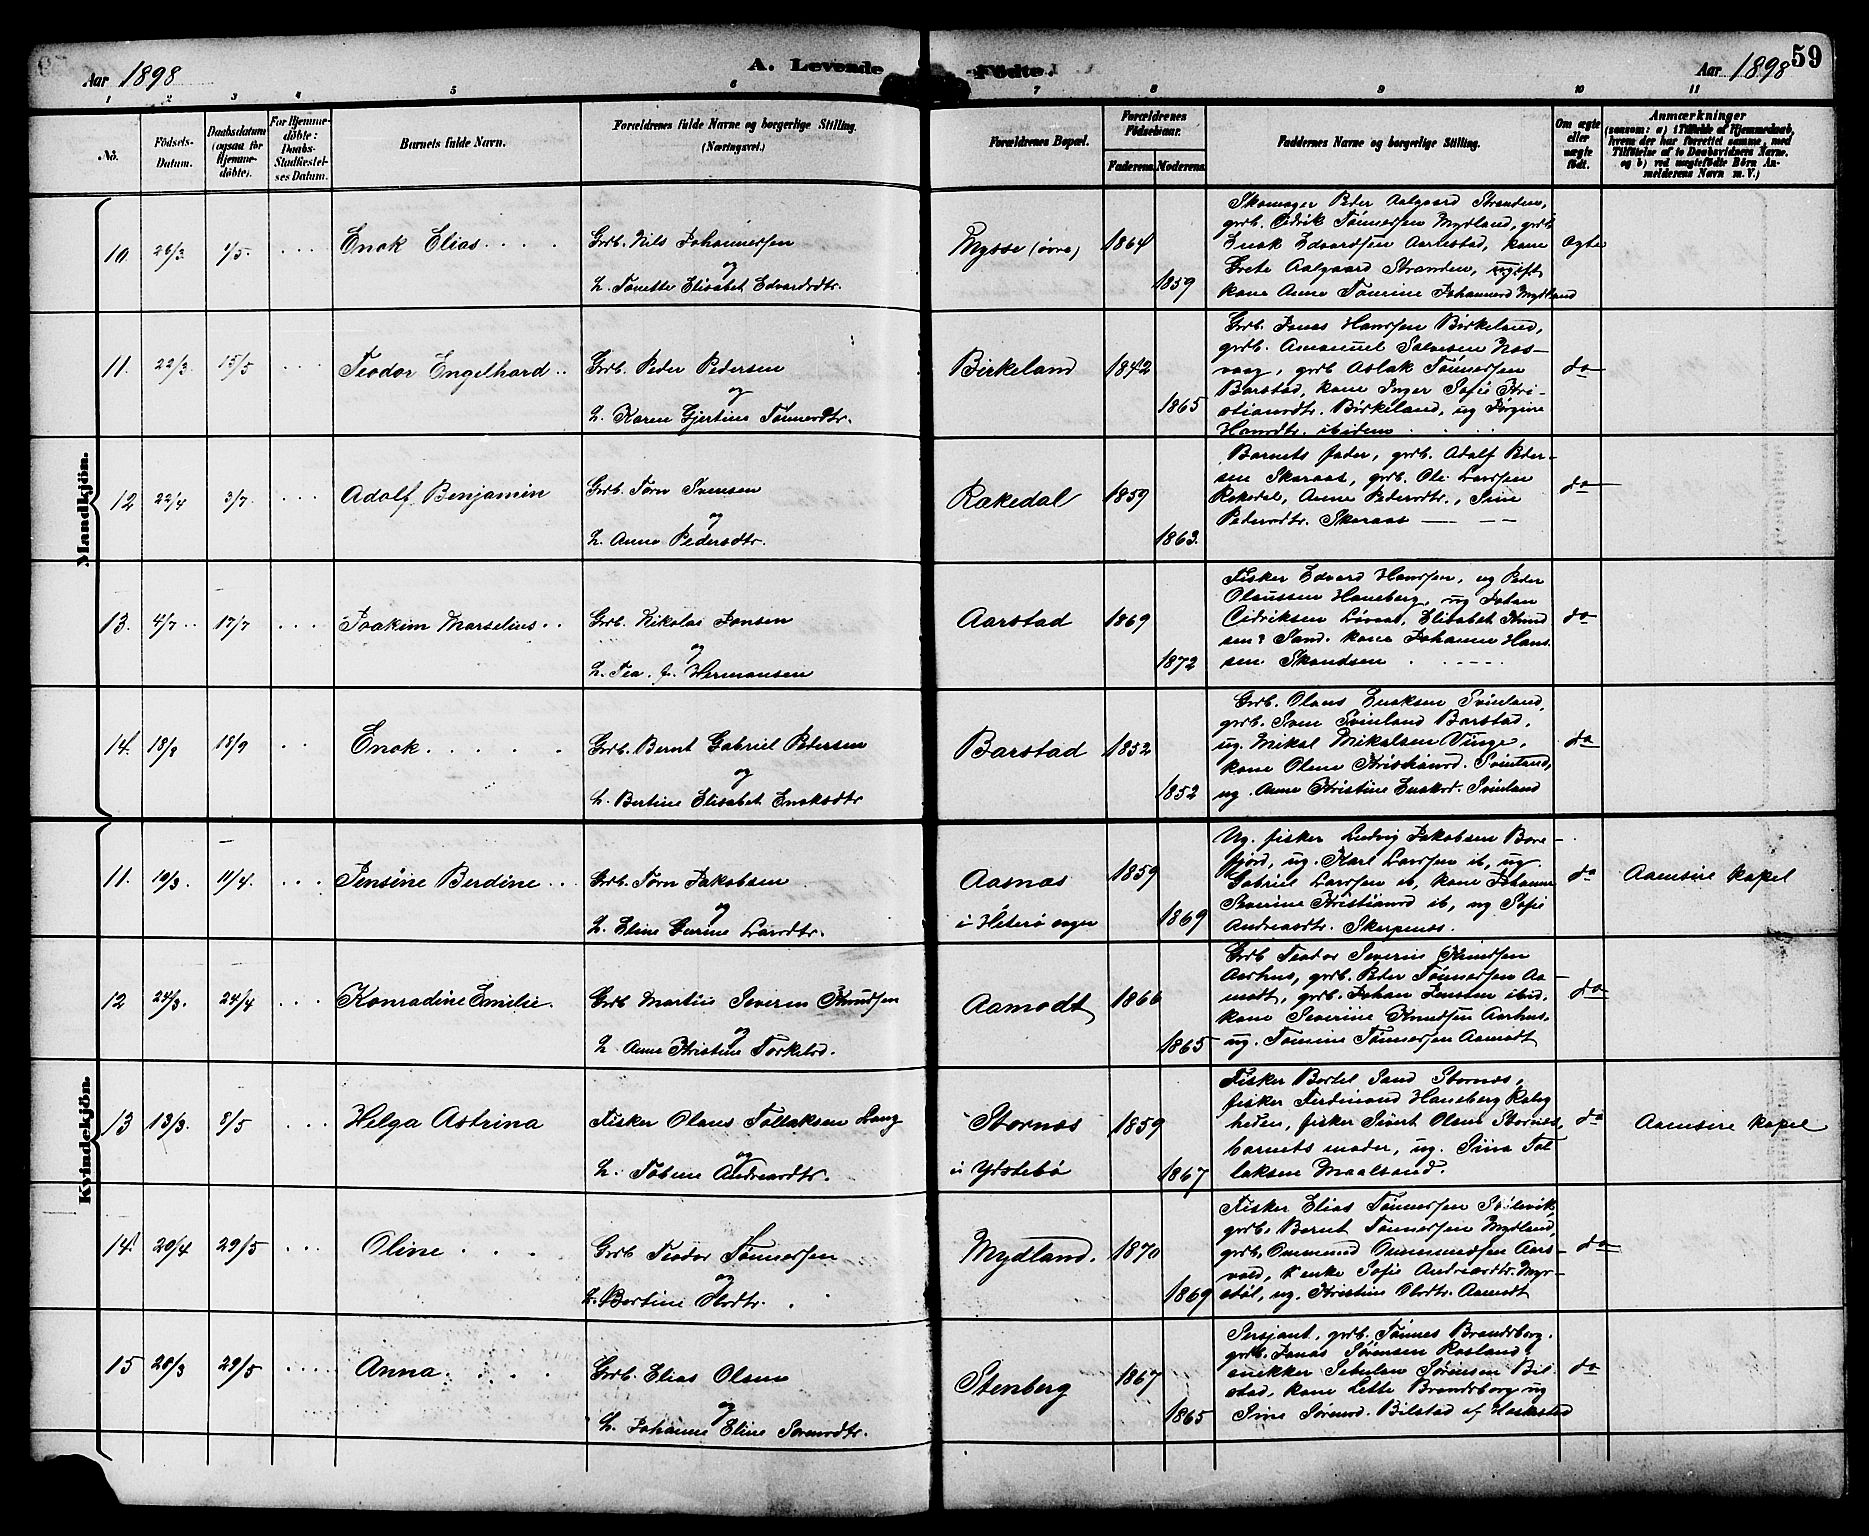 Aar 1898
A. Levende
Fødte.
Aar 1898
59
1 2 3 4 5 6 7 8 9 10 11
No.
Fødsels-Datum.
Daabsdatum (ogsaa for Hjemme-døbte).
For Hjemme-døbte: Daabs-Stadfæstel-ses Datum.
Barnets fulde Navn.
Forældrenes fulde Navne og borgerlige Stilling. (Næringsvei.)
Forældrenes Bopæl.
Forældrenes Fødselsaar.
Faderens Moderens
Faddernes Navne og borgerlige Stilling.
Om ægte eller uægte født.
Anmærkninger
(saasom: a) i Tilfælde af Hjemmedaab, hvem der har forrettet samme, med Tilføielse af to Daabsvidners Navne, og b) ved uægtefødte Børn An-melderens Navn m. V.)
Mandkjøn.
10 26/3 1/5. Enok Elias
Grb. Nils Johannessen
og
h. Tonette Elisabet Edvardsdtr.
Mysse (øvre) 1864
1859
Skomager Peder Aalgaard Stranden,
grb. Cedrik Tønnessen Mydland, grb
Enok Edvardsen Aarrestad, kone
Grete Aalgaard Stranden, ugift
kone Anna Tomine Johannesd Mydland
ægte
11. 22/3. 15/5 Teodor Engelhard
Grb. Peder Pedersen
og
h. Karen Gjertine Tønnesdtr.
Birkeland 1842
1865
Grb. Jonas Hanssen Birkeland,
grdb. Amanuel Salvesen Nes-
vaag, grb Aslak Tønnessen
Barstad, kone Inger Sofie Kri-
stiansdtr. Birkeland, ug Jørgine
Hansdtr. ibidem
do
12 22/4 3/7. Adolf Benjamin
Grb. Tørn Svensen
og
h. Anna Pedersdtr.
Rækedal 1859
1863.
Barnets fader, grb. Adolf Peder-
sen Skaraas, grb. Ole Larssen
Rekedal, Anna Pedersdtr., Sine
Pedersdtr. Skaraas
do
13. 4/7 17/7 Joakim Marselius
Grb. Nikolai Jonsen
og
h. Tea. J. Hermansen
Aarstad 1869
1872
Fisker Edvard Hanssen, ug Peder
Olaussen Haneberg, ug Johan
Cedriksen Løvaas, Elisabet Knud
sen? Sand. kone Johanne Hans
sen Skandsen
do
14. 18/8 18/9 Enok
Grb. Bernt Gabriel Petersen
og
h. Bertine Elisabet Enoksdtr
Barstad 1852
1852
Grb. Olaus Enoksen Svinland,
grb. Sven Svinland Barstad,
ug. Mikal Mikalsen Vinge,
kone Olene Kristiansd. Svinland,
ug. Anne Kristine Enoksd. Svinland
do
Kvindekjøn.
11. 19/3. 11/4. Jensine Berdine
Grb. Tørn Jakobsen
og
h. Eline Gurine Larsdtr.
Aasnæs
i Hiterø sogn
1859
1869
Ug. fisker Ludvig Jakobsen Bore-
fjord, ug. Karl Larssen ib, ug.
Gabriel Larssen ib, kone Johanne
Severine Kristiansd ib, ug Sofie
Andreasdtr. Skerpenes.
do
Aamsire kapel
12 24/3. 24/4 Konradine Emilie.
Grb Martin Severin Knudsen
og
h Anne Kristine Torkelsd.
Aamodt 1866
1865
Grb Teodor Severin Knudsen
Aarhus, grb. Peder Tønnessen Aa-
modt, grb. Johan Jensen ibid.
kone Severine Knudsen Aarhus,
ug. Tomine Tønnessen Aamodt
do
13 13/3. 8/5 Helga Astrina
Fisker Olaus Tollaksen Haug
og
h. Tobine Andreasdtr.
Stornæs
i Ydstebø
1859
1867
Fisker Bertel Sand Stornæs,
fisker Ferdinand Haneberg Ræg
heden, fisker Sivert Olsen Stornæs,
barnets moder, ug. Sina Tol
laksen Maalsand.
do
Aamsire kapel
14. 20/4 29/5 Oline
Grb Teodor Tønnessen
og
h. Bertine Olsdtr.
Mydland. 1870
1869
Fisker Elias Tønnessen Solsvik
grb. Bernt Tønnessen Mydland,
grb, Ommund Ommundsen Aars-
vold, enke Sofie Andreasdtr. Myr-
støl, ug. Kristine Olsdtr. Aamodt
do
15 28/3 29/5 Anna
Grb. Elias Olsen
og
h. Johanne Eline Sørensdtr.
Stenberg 1867
1865
Sersjant, grb. Tønnes Brandsborg.
grb. Jonas Sørensen Rosland?
snekker Sebulon Sørensen Bil-
stad, kone Lette Brandsborg ug
Sine Sørensd. Bilstad af Heskestad
do